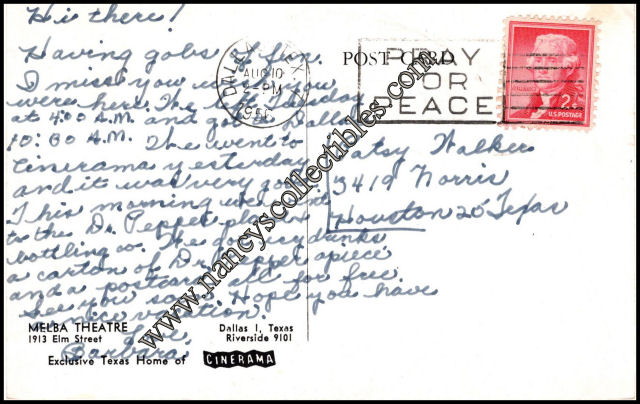 Hi there!
Having gobs of fun.
I miss you wish you
were here. We left Tuesday
at 4:00 A.M. and got to Dallas
10:00 A.M. We went to
Cinerama yesterday
and it was very good.
This morning we went
to the Dr. Pepper plant
bottling co. They gave us drinks
a carton of Dr. Pepper apiece
and a postcard all for free.
See you soon. Hope you have
a nice vacation.
Love,
Barbara
MELBA THEATRE
1913 Elm Street
Dallas 1, Texas
Riverside 9101
Exclusive Texas Home of CINERAMA
POST CARD
DALLAS TEX
AUG 10
PM
PRAY
FOR
PEACE
2¢
U.S. POSTAGE
Patsy Walker
3419 Norris
Houston 25 Texas
www.nancyscollectibles.com